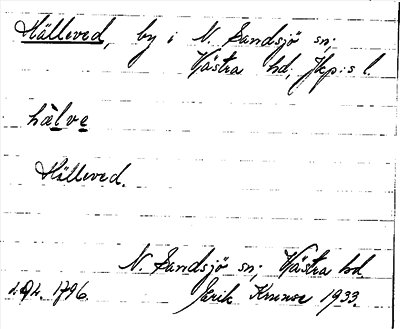 Hälleved, by i N. Sandsjö sn;
Västra hd; Jkp:s l.
hàlve
Hälleved.
N. Sandsjö sn; Västra hd
1796. Erik Kruuse 1933.